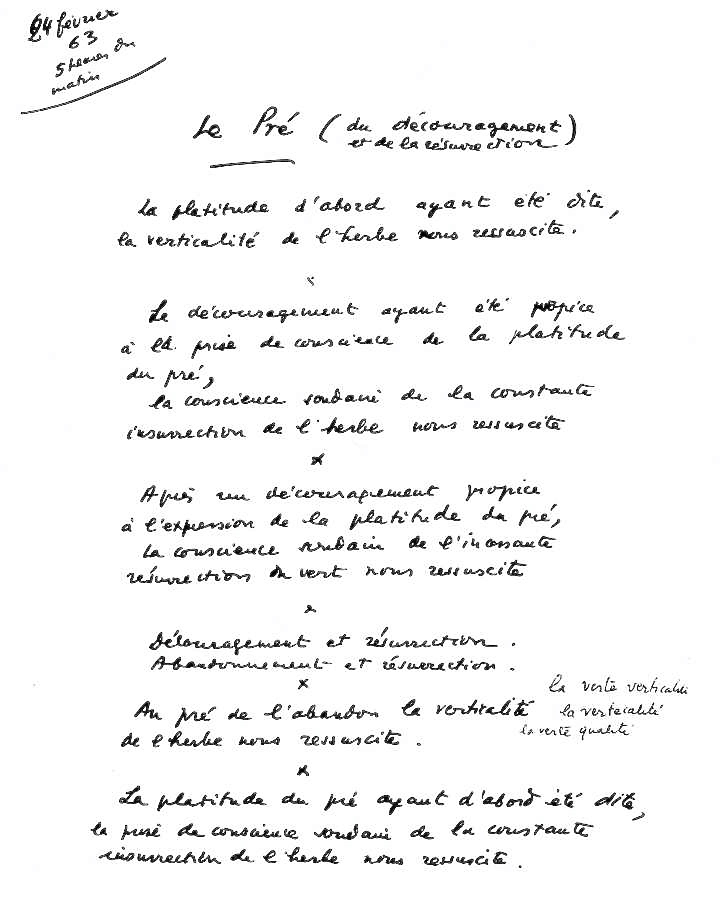 24 février
63
5 heures du
matin
Le Pré (du découragement)
et de la résurrection
La platitude d'abord ayant été dite,
la verticalité de l'herbe nous ressuscite.
×
Le découragement ayant été propice
à la prise de conscience de la platitude
du pré,
la conscience soudaine de la constante
insurrection de l'herbe nous ressuscite
×
Après un découragement propice
à l'expression de la platitude du pré,
la conscience soudaine de l'incessante
résurrection du vert nous ressuscite
×
Découragement et résurrection.
Abandonnement et résurrection.
×
la verte verticalité
Au pré de l'abandon la verticalité
la vertecalité
de l'herbe nous ressuscite.
la verte qualité
×
La platitude du pré ayant d'abord été dite,
la prise de conscience soudaine de la constante
insurrection de l'herbe nous ressuscite.